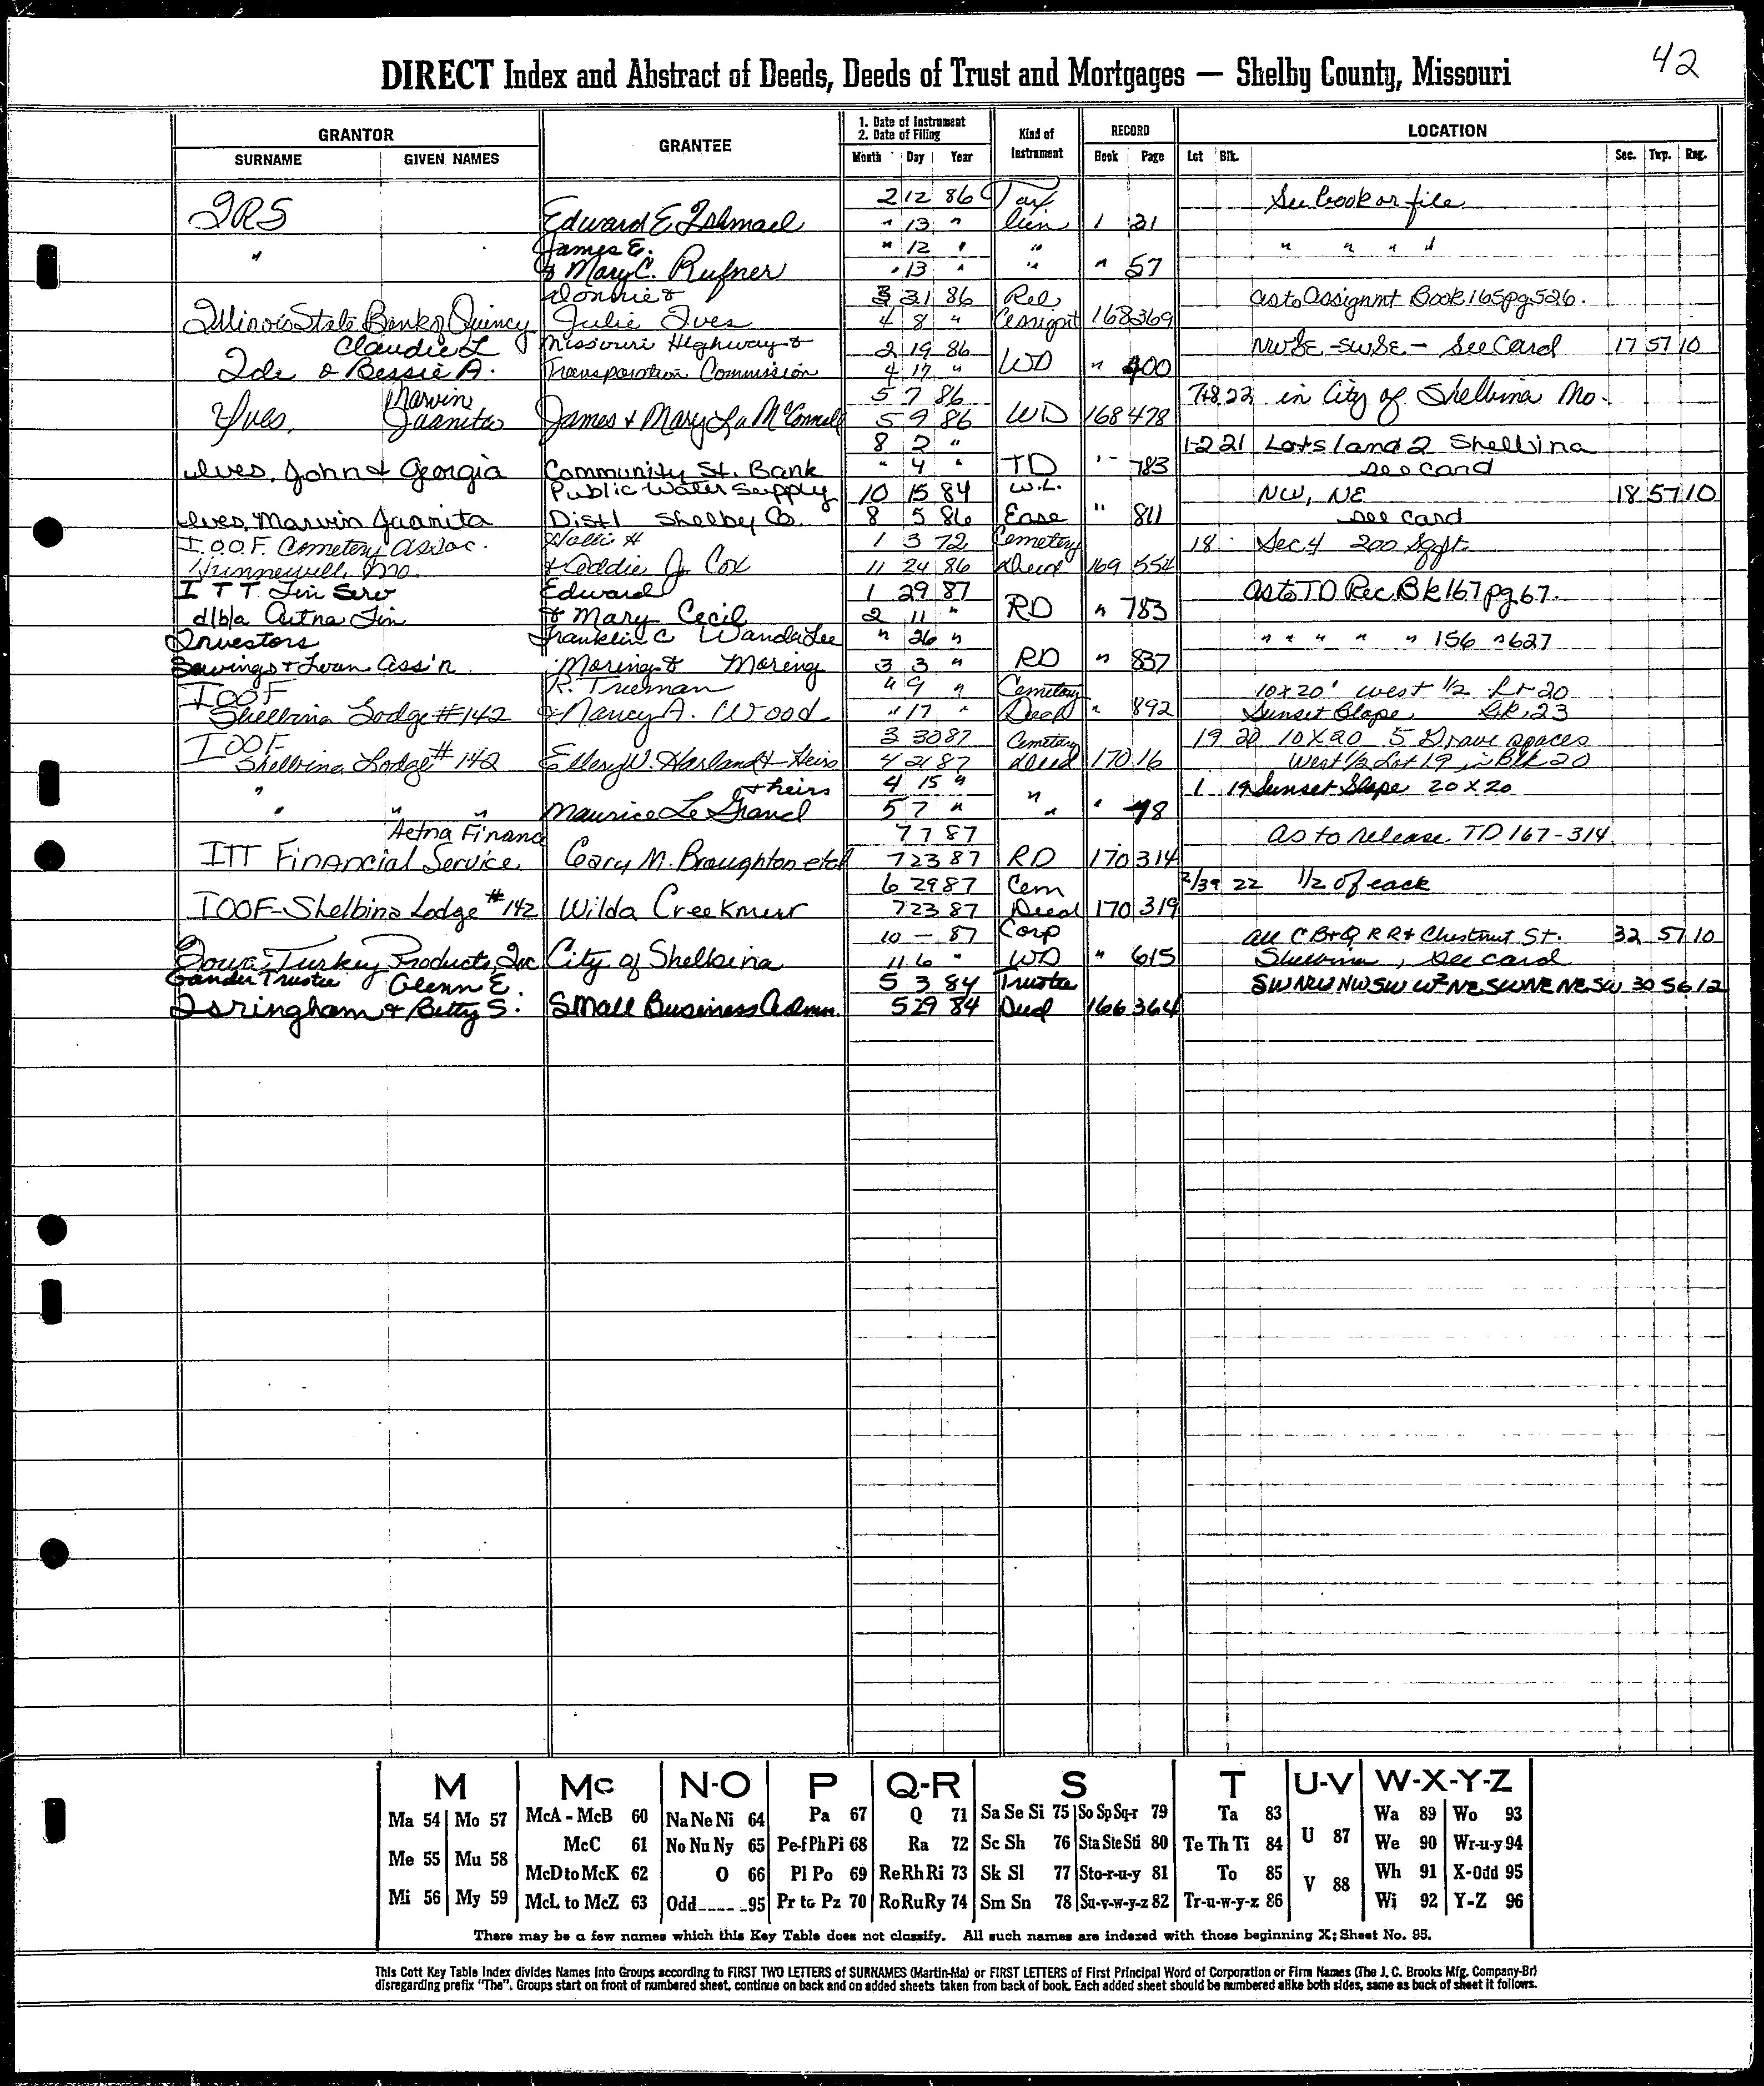 42
DIRECT Index and Abstract of Deeds, Deeds of Trust and Mortgages — Shelby County, Missouri
GRANTOR GRANTEE 1. Date of Instrument 2. Date of Filing Kind of Instrument RECORD LOCATION
SURNAME GIVEN NAMES Month Day Year Book Page Lot Blk. Sec. Twp. Rng.
2 12 86 Tax See book or file
IRS Edward E Ishmael " 13 " lien 1 31
" James E. " 12 " " " " " "
& Mary C. Rufner " 13 " " " 57
Donnie & 3 31 86 Rel as to Assignmt Book 165 pg 526.
Illinois State Bank of Quincy Julie Ives 4 8 " Assignt 168 369
Claudie L Missouri Highway & 2 19 86 NWSE-SWSE - See Card 17 57 10
Ide & Bessie A. Transporation Commission 4 17 " WD " 400
Marvin 5 7 86 7+8 22 in City of Shelbina Mo.
Yves, Juanita James & Mary Lu McConnell 5 9 86 WD 168 478
8 2 " 1-2 21 Lots 1 and 2 Shelbina
Ives, John & Georgia Community St. Bank " 4 " TD " 783 see card
Public Water Supply 10 15 84 W.L. NW, NE 18 57 10
Ives, Marvin Juanita Dist 1 Shelby Co. 8 5 86 Ease " 811 see card
I.O.O.F. Cemetery Assoc. 1 3 72 Cemetery 18 Sec 4 200 Sq ft.
Hunnewell, Mo. Cox 11 24 86 Deed 169 554
I T T Fin Serv Edward 1 29 87 as to TD Rec. Bk 167 pg 67.
d/b/a Aetna Fin & Mary Cecil 2 11 " RD " 783
Investors Franklin C Wanda Lee " 26 " " " " " " 156 " 627
Savings & Loan Ass'n. Moring & Moreing 3 3 " RD " 837
IOOF R. Trueman " 9 " Cemetary 10x20' west 1/2 Lt 20
Shelbina Lodge #142 & Nancy A. Wood " 17 " Deed " 892 Sunset Slope, Bk. 23
IOOF 3 30 87 Cemetary 19 20 10x20 5 Grave spaces
Shelbina Lodge #142 Ellery W. Harland & Heirs 4 2 87 deed 170 16 West 1/2 Lot 19 in Blk 20
" & heirs 4 15 " " 1 19 Sunset Slope 20 x 20
" " " Maurice Le Grand 5 7 " " " 48
Aetna Financ 7 7 87 as to release TD 167-314
ITT Financial Service Gary M. Broughton etal 7 23 87 RD 170 314
6 29 87 Cem 2/39 22 1/2 of each
IOOF-Shelbina Lodge #142 Wilda Creekmur 7 23 87 Deed 170 319
10 - 87 Corp all CB+Q RR+ Chestnut St. 32 57 10
Iowa Turkey Products, Inc City of Shelbina 11 6 " WD " 615 Shelbina, see card
Gander Trustee Glenn E. 5 3 84 Trustee SWNW NWSW W2NE SWNE NESW 30 56 12
Isringham & Betty S. Small Business Admn. 5 29 84 Deed 166 364
M Mc N-O P Q-R S T U-V W-X-Y-Z
Ma 54 Mo 57 McA - McB 60 Na Ne Ni 64 Pa 67 Q 71 Sa Se Si 75 So Sp Sq-r 79 Ta 83 U 87 Wa 89 Wo 93
Me 55 Mu 58 McC 61 No Nu Ny 65 Pe-f Ph Pi 68 Ra 72 Sc Sh 76 Sta Ste Sti 80 Te Th Ti 84 We 90 Wr-u-y 94
McD to McK 62 O 66 Pl Po 69 Re Rh Ri 73 Sk Sl 77 Sto-r-u-y 81 To 85 V 88 Wh 91 X-Odd 95
Mi 56 My 59 McL to McZ 63 Odd 95 Pr to Pz 70 Ro Ru Ry 74 Sm Sn 78 Su-v-w-y-z 82 Tr-u-w-y-z 86 Wi 92 Y-Z 96
There may be a few names which this Key Table does not classify. All such names are indexed with those beginning X; Sheet No. 95.
This Cott Key Table Index divides Names into Groups according to FIRST TWO LETTERS of SURNAMES (Martin-Ma) or FIRST LETTERS of First Principal Word of Corporation or Firm Names (The J. C. Brooks Mfg. Company-Br)
disregarding prefix "The". Groups start on front of numbered sheet, continue on back and on added sheets taken from back of book. Each added sheet should be numbered alike both sides, same as back of sheet it follows.